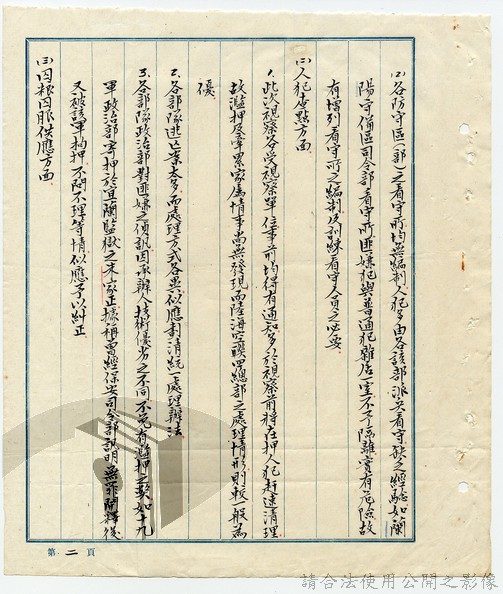 (2) 各防守區(部)之看守所均無編制人犯多由各該部派兵看守缺乏經驗如蘭
陽守備區司令部看守所匪嫌犯與普通犯雜居一室不予隔離實有危險故
有增列看守所之編制及訓練看守人員之必要
(二)人犯查點方面
1. 此次視察各受視察單位事前均得有通知多於視察前將在押人犯赶速清理
故濫押及牽累家屬情事尚無發現而陸海空聯四總部之處理情形則較一般為
優
2. 各部隊逃亡案太多而處理方式各異似應制清統一處理辦法
3. 各部隊政治部對匪嫌之偵訊因承辦人技術優劣之不同不免有濫押之弊如十九
軍政治部寄押於宜蘭監獄之朱家正據稱曾經保安司令部訊明無罪開釋後
又被該軍拘押不問不理等情似應予以糾正
(三)囚粮囚服供應方面
第二頁
請合法使用公開之影像